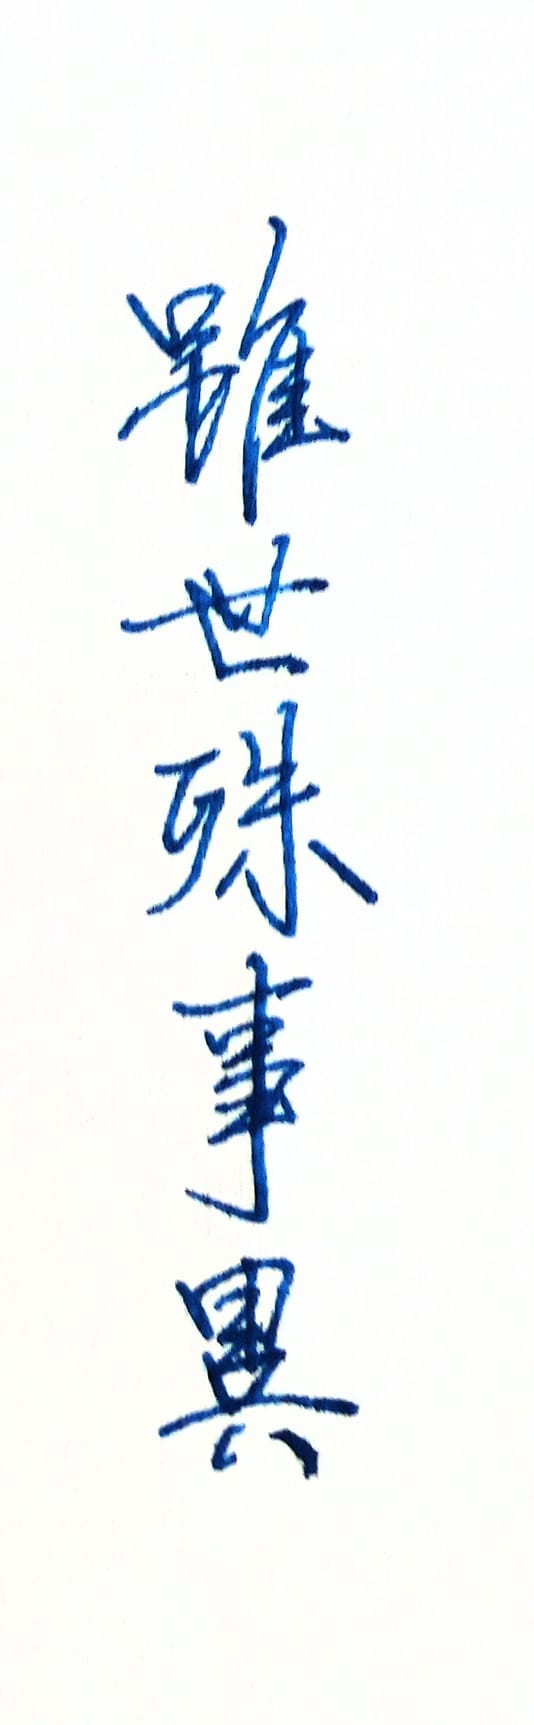 雖世殊事異